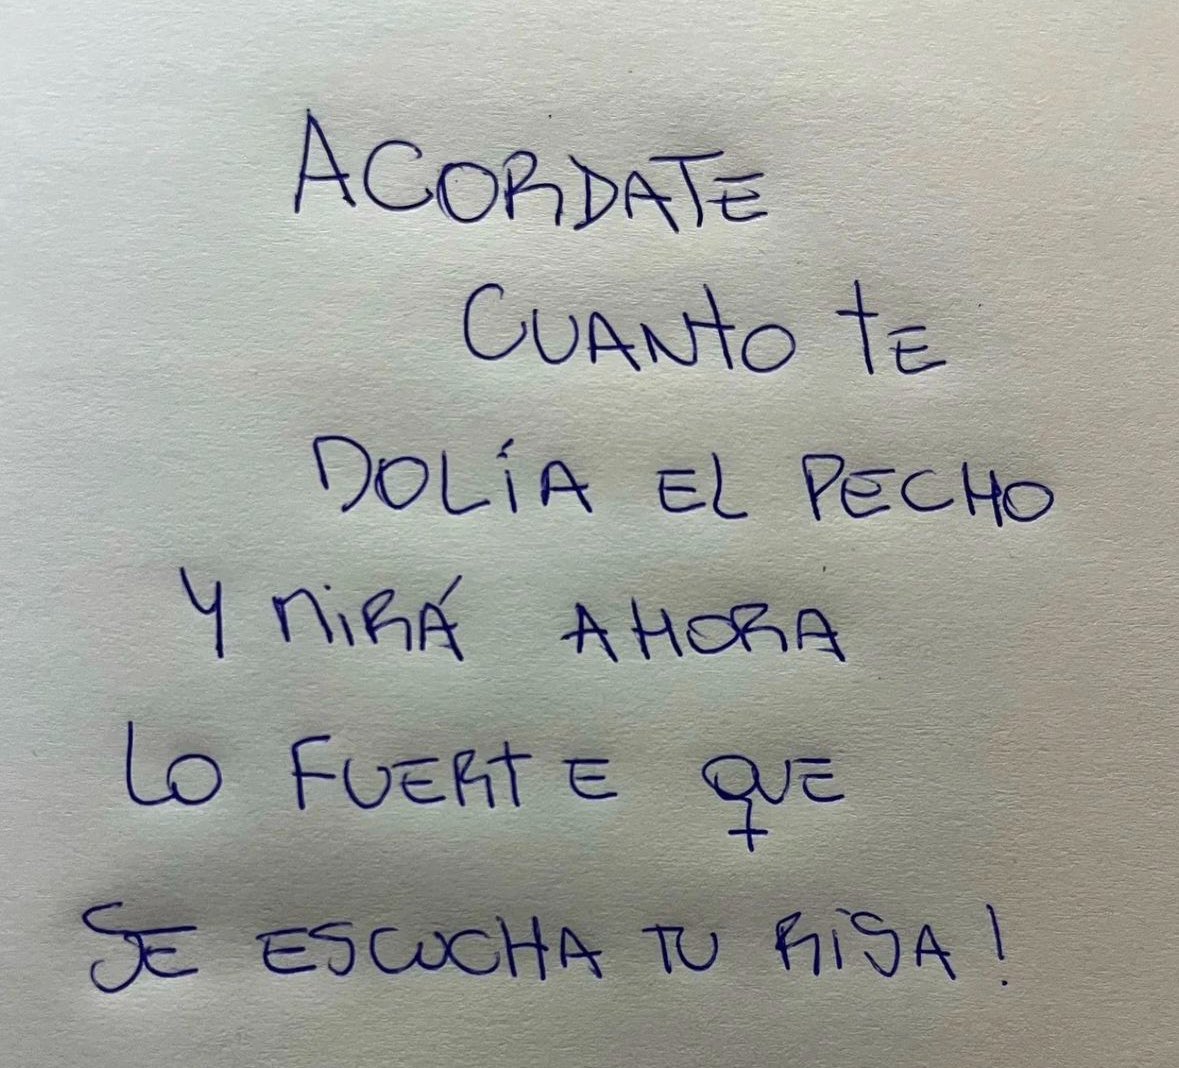 ACORDATE
CUANTO TE
DOLÍA EL PECHO
Y MIRÁ AHORA
LO FUERTE QUE
SE ESCUCHA TU RISA!